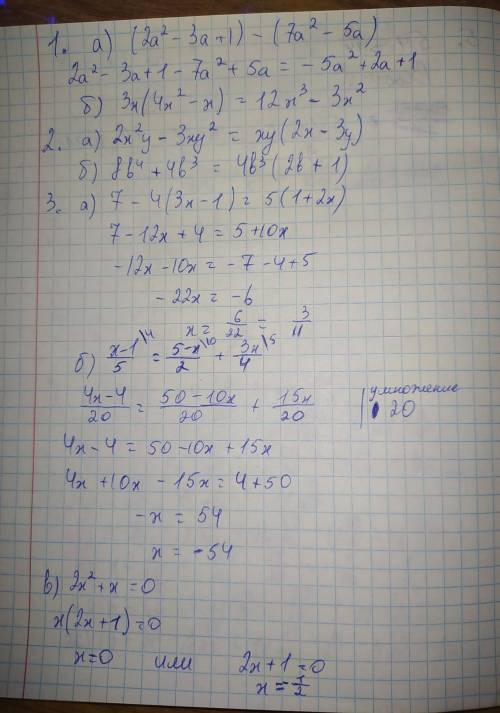 1. а) (2a² - 3a + 1) - (7a² - 5a)
2a² - 3a + 1 - 7a² + 5a = -5a² + 2a + 1
б) 3x(4x² - x) = 12x³ - 3x²
2. а) 2x²y - 3xy² = xy(2x - 3y)
б) 8b⁴ + 4b³ = 4b³(2b + 1)
3. а) 7 - 4(3x - 1) = 5(1 + 2x)
7 - 12x + 4 = 5 + 10x
-12x - 10x = -7 - 4 + 5
-22x = -6
x = 6/22 = 3/11
б) x-1/5 \4 = 5-x/2 \10 + 3x/4 \5
4x-4/20 = 50-10x/20 + 15x/20 | умножение
20
4x - 4 = 50 - 10x + 15x
4x + 10x - 15x = 4 + 50
-x = 54
x = -54
в) 2x² + x = 0
x(2x + 1) = 0
x = 0 или 2x + 1 = 0
x = -1/2